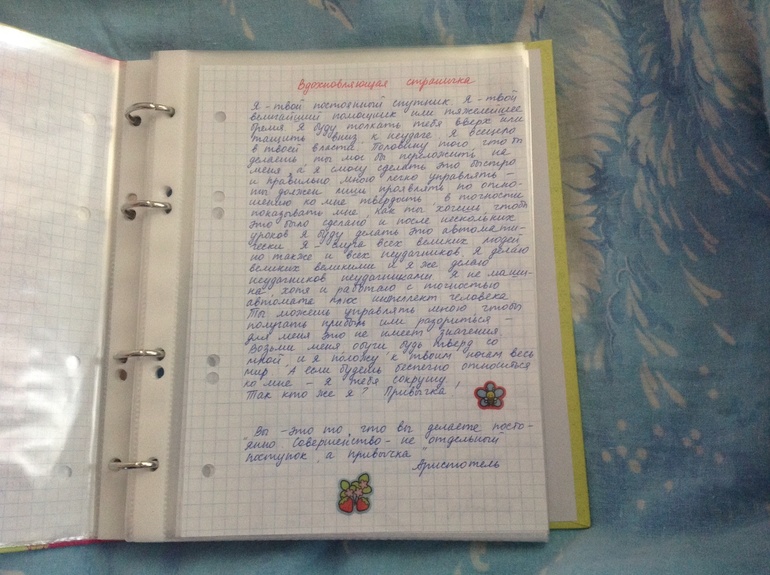 Вдохновляющая страничка
Я - твой постоянный спутник. Я - твой
величайший помощник или тяжелейшее
бремя. Я буду толкать тебя вверх или
тащить вниз к неудаче. Я всецело
в твоей власти. Половину того, что ты
делаешь, ты мог бы переложить на
меня, а я смогу сделать это быстро
и правильно. Мною легко управлять -
ты должен лишь проявлять по отно-
шению ко мне твёрдость, в точности
показывать мне, как ты хочешь, чтобы
это было сделано и после нескольких
уроков я буду делать это автомати-
чески. Я - слуга всех великих людей
но также и всех неудачников. Я делаю
великих великими и я же делаю
неудачников неудачниками. Я не маши-
на хотя и работаю с точностью
автомата плюс интеллект человека
Ты можешь управлять мною чтобы
получать прибыль или разориться -
для меня это не имеет значения.
Возьми меня, обучи, будь твёрд со
мной и я положу к твоим ногам весь
мир. А если будешь беспечно относиться
ко мне - я тебя сокрушу.
Так кто же я? Привычка!
"Вы - это то, что вы делаете посто-
янно. Совершенство - не отдельный
поступок, а привычка"
Аристотель